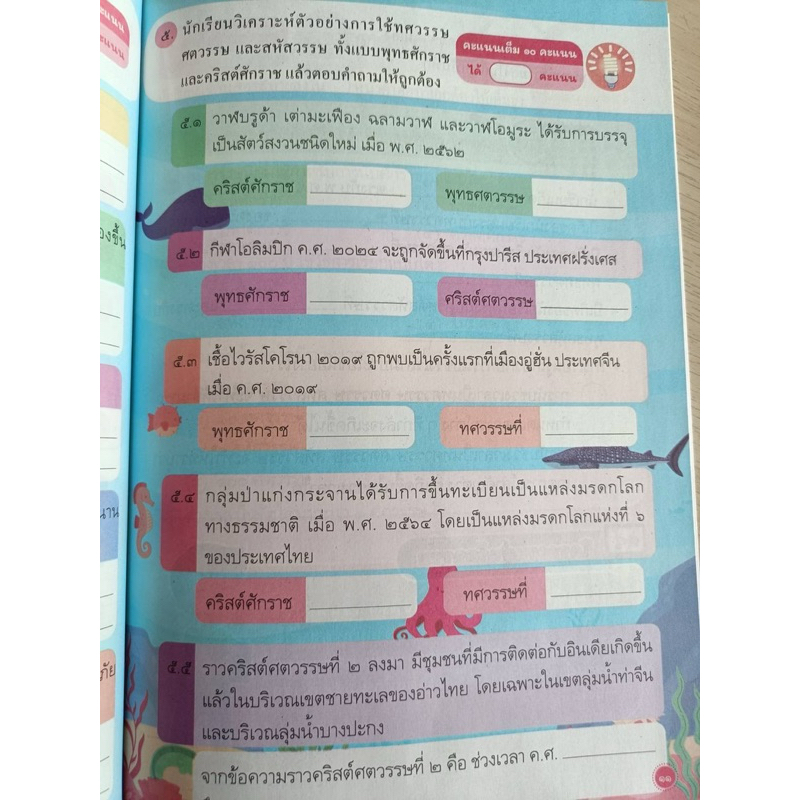 ๕. นักเรียนวิเคราะห์ตัวอย่างการใช้ทศวรรษ
ศตวรรษ และสหัสวรรษ ทั้งแบบพุทธศักราช
และคริสต์ศักราช แล้วตอบคำถามให้ถูกต้อง
คะแนนเต็ม ๑๐ คะแนน
ได้ คะแนน
๕.๑ วาฬบรูด้า เต่ามะเฟือง ฉลามวาฬ และวาฬโอมูระ ได้รับการบรรจุ
เป็นสัตว์สงวนชนิดใหม่ เมื่อ พ.ศ. ๒๕๖๒
คริสต์ศักราช พุทธศตวรรษ
๕.๒ กีฬาโอลิมปิก ค.ศ. ๒๐๒๔ จะถูกจัดขึ้นที่กรุงปารีส ประเทศฝรั่งเศส
พุทธศักราช คริสต์ศตวรรษ
๕.๓ เชื้อไวรัสโคโรนา ๒๐๑๙ ถูกพบเป็นครั้งแรกที่เมืองอู่ฮั่น ประเทศจีน
เมื่อ ค.ศ. ๒๐๑๙
พุทธศักราช ทศวรรษที่
๕.๔ กลุ่มป่าแก่งกระจานได้รับการขึ้นทะเบียนเป็นแหล่งมรดกโลก
ทางธรรมชาติ เมื่อ พ.ศ. ๒๕๖๔ โดยเป็นแหล่งมรดกโลกแห่งที่ ๖
ของประเทศไทย
คริสต์ศักราช ทศวรรษที่
๕.๕ ราวคริสต์ศตวรรษที่ ๒ ลงมา มีชุมชนที่มีการติดต่อกับอินเดียเกิดขึ้น
แล้วในบริเวณเขตชายทะเลของอ่าวไทย โดยเฉพาะในเขตลุ่มน้ำท่าจีน
และบริเวณลุ่มน้ำบางปะกง
จากข้อความราวคริสต์ศตวรรษที่ ๒ คือ ช่วงเวลา ค.ศ.
๑๑